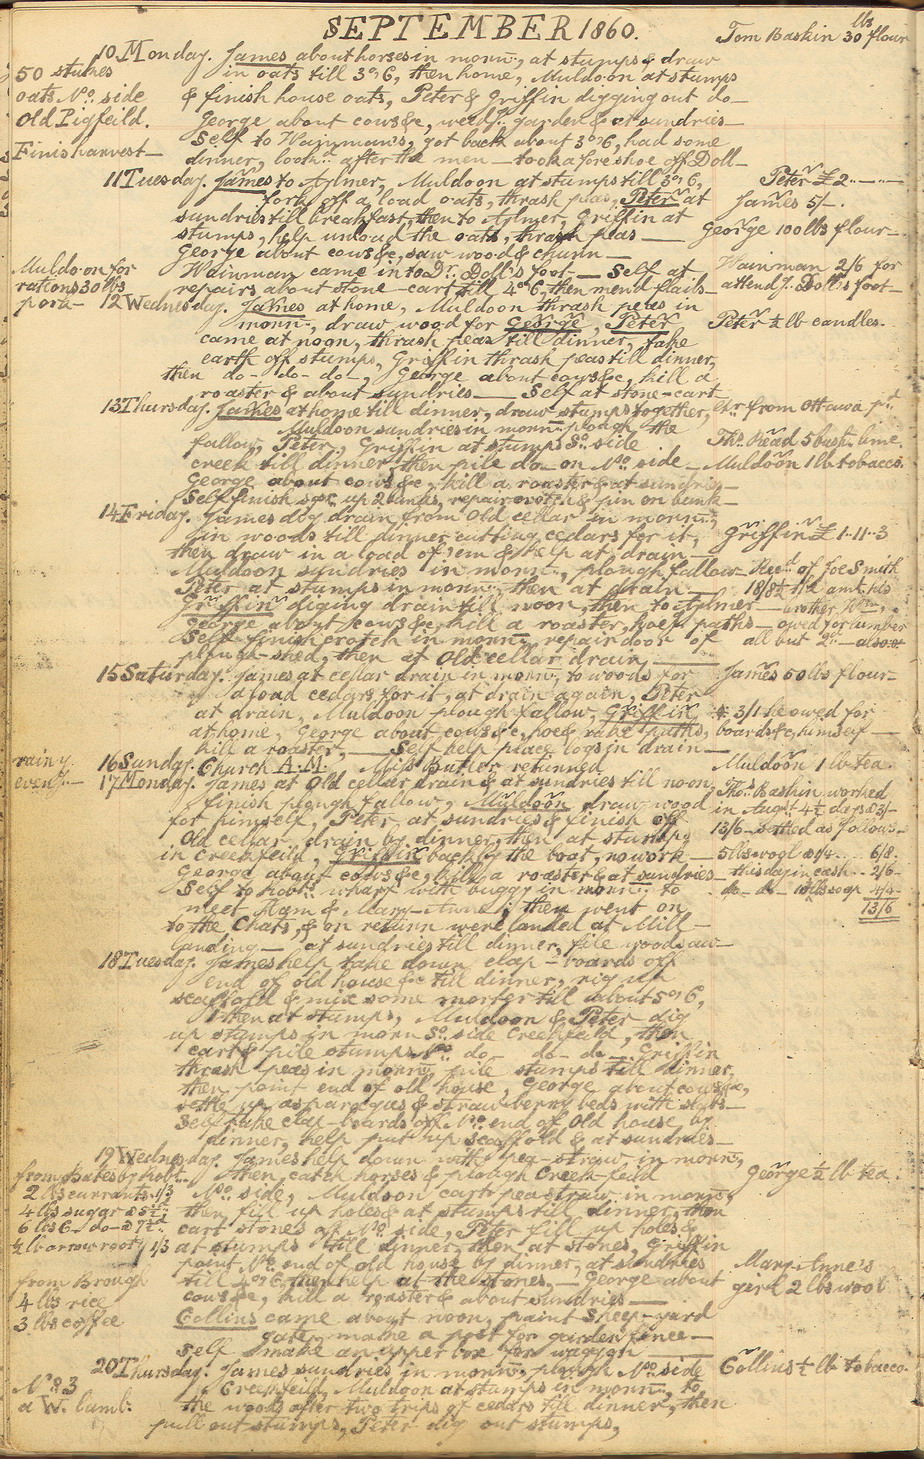 SEPTEMBER 1860.
Tom Baskin 30 lbs flour
10 Monday. James about horses in morng., at stumps & draw
50 stukes
in oats till 3 or 6, then home, Muldoon at stumps
oats No. side
& finish house oats, Peter & Griffin digging out do—
Old Pigfeild.
George about cows &c, weedg. garden & at sundries—
Self to Wainman's, got back about 3 or 6, had some
Finis harvest—
dinner, lookg. after the men — took a fore shoe off Doll—
11 Tuesday. James to Aylmer, Muldoon at stumps till 3 or 6,
Peter £2..—..—
fork off a load oats, thrash peas, Peter at
James 5/-.
sundries till breakfast, then to Aylmer, Griffin at
stumps, help unload the oats, thrash peas —
George 100 lbs flour—
George about cows &c, saw wood & churn —
Muldoon for
Wainman came in to ad. Doll's foot — Self at
Wainman 2/6 for
rations 30 lbs
repairs about stone-cart till 4 or 6, then mend flails—
attendg. Doll's foot—
pork—
12 Wednesday. James at home, Muldoon thrash peas in
morng., draw wood for George, Peter
Peter ½ lb candles.
came at noon, thrash peas till dinner, take
earth off stumps, Griffin thrash peas till dinner,
then do— do— do—, George about cows &c, kill a
roaster & about sundries — Self at stone-cart
13 Thursday. James at home till dinner, draw stumps together,
from Ottawa pd.
Muldoon sundries in morng. plough the
fallow, Peter, Griffin at stumps So. side
Thos. Read 5 bush. lime.
creek till dinner, then pile do— on No. side —
Muldoon 1 lb tobacco.
George about cows &c, kill a roaster & at sundries—
Self finish up 2 bunks, repair crotch & pin on bunk—
14 Friday. James dig drain from Old cellar in morng.,
in woods till dinner cutting cedars for it,
Griffin £1..11..3
then draw in a load of 'em & help at drain —
Muldoon sundries in morng., plough fallow—
Recd. of Joe Smith
Peter at stumps in morng., then at drain —
18/8½ the amt. his
Griffin diging drain till noon, then to Aylmer —
brother Wm.
George about cows &c, kill a roaster, hoe paths —
owed for lumber
Self finish crotch in morng., repair door of
all but 2d — also
plough-shed, then at Old cellar drain, —
15 Saturday. James at cellar drain in morng., to woods for
James 50 lbs flour—
a load cedars for it, at drain again, Peter
at drain, Muldoon plough fallow, Griffin
3/1 he owed for
at home, George about cows &c, hoe & rake paths,
boards &c, himself —
kill a roaster, — Self help place logs in drain —
rainy
16 Sunday. Church A.M. Miss Butler returned
Muldoon 1 lb tea.
eveng.—
17 Monday. James at Old cellar drain & at sundries till noon,
Thos. Baskin worked
finish plough fallow, Muldoon draw wood
in Augst. 4½ days @ 3/-
for himself, Peter at sundries & finish off
13/6 — settled as follows—
Old cellar drain by dinner, then at stumps
in Creekfeild, Griffin back by the boat, no work —
5 lbs wool @ 1/4... 6/8.
George about cows &c, kill a roaster & at sundries—
this day in cash.. 2/6-
Self to Robt's wharf with buggy in morng. to
do— do— lbs soap 4/4-
meet Mam & Mary-Anne; then went on
13/6
to the Chats, & on return were landed at Mill—
landing — at sundries till dinner, file woodsaw—
18 Tuesday. James help take down clap-boards off
end of old house &c till dinner, rig up
scaffold & mix some morter till about 5 or 6,
then at stumps, Muldoon & Peter dig
up stumps in morn So. side Creekfeild, then
cart & pile stumps No. do— do— do— Griffin
thrash peas in morng., pile stumps till dinner,
then point end of old house, George about cows &c,
settle up asparagus & strawberry beds with slabs—
Self take clap-boards off No. end of Old house by
dinner, help put up scaffold & at sundries—
19 Wednesday. James help down with pea-straw in morng.,
from Bates by Robt.
then catch horses & plough Creek-feild
George ½ lb tea.
2 lbs currants 1/3
No. side, Muldoon cart pea straw in morng.,
4 lbs sugar
then fill up holes & at stumps till dinner, then
6 lbs
cart stones off No. side, Peter fill up holes &
½ lb arrowroot 1/3
at stumps till dinner, then at stones, Griffin
point No. end of old house by dinner, at sundries
Mary-Anne's
from Brough
till 4 or 6, then help at the stones, — George about
girl 2 lbs wool
4 lbs rice
cows &c, kill a roaster & about sundries —
3 lbs coffee
Collins came about noon, paint Sheep-yard
gate, make a post for garden fence—
Self make an upper box for waggon —
20 Thursday. James sundries in morng., plough No. side
Collins ½ lb tobacco.
No. 3
Creekfeild, Muldoon at stumps in morng., to
a W. lamb.
the woods after two trips of cedars till dinner, then
pull out stumps, Peter dig out stumps,